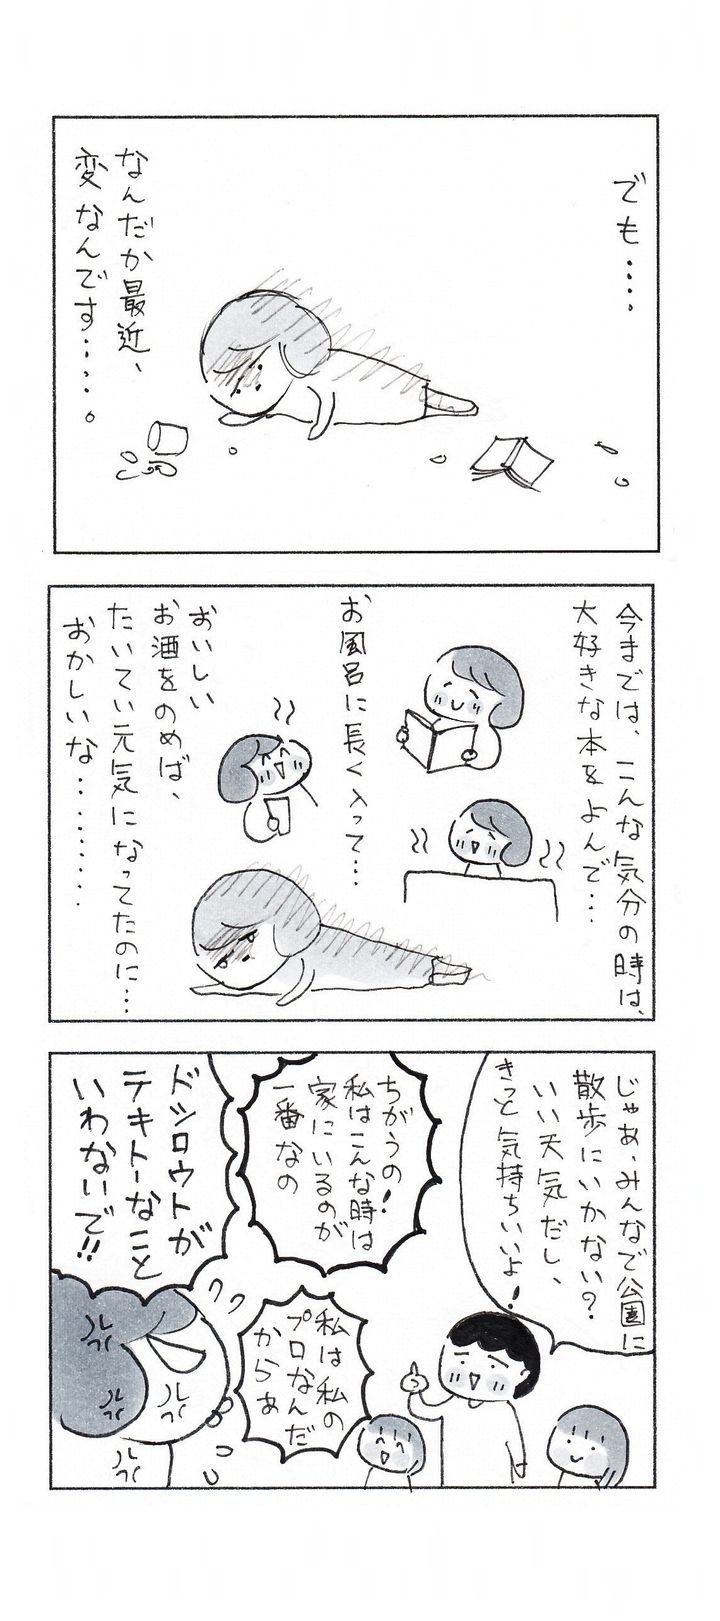 でも‥‥
なんだか最近、
変なんです‥‥‥。
今までは、こんな気分の時は、
大好きな本をよんで‥‥
お風呂に長く入って‥‥
おいしい
お酒をのめば、
たいてい元気になってたのに‥‥
おかしいな‥‥‥‥‥
じゃあ、みんなで公園に
散歩にいかない?
いい天気だし、
きっと気持ちいいよ!
ちがうの!
私はこんな時は
家にいるのが
一番なの
私は私の
プロなんだ
からぁ
ドシロウトが
テキトーなこと
いわないで!!